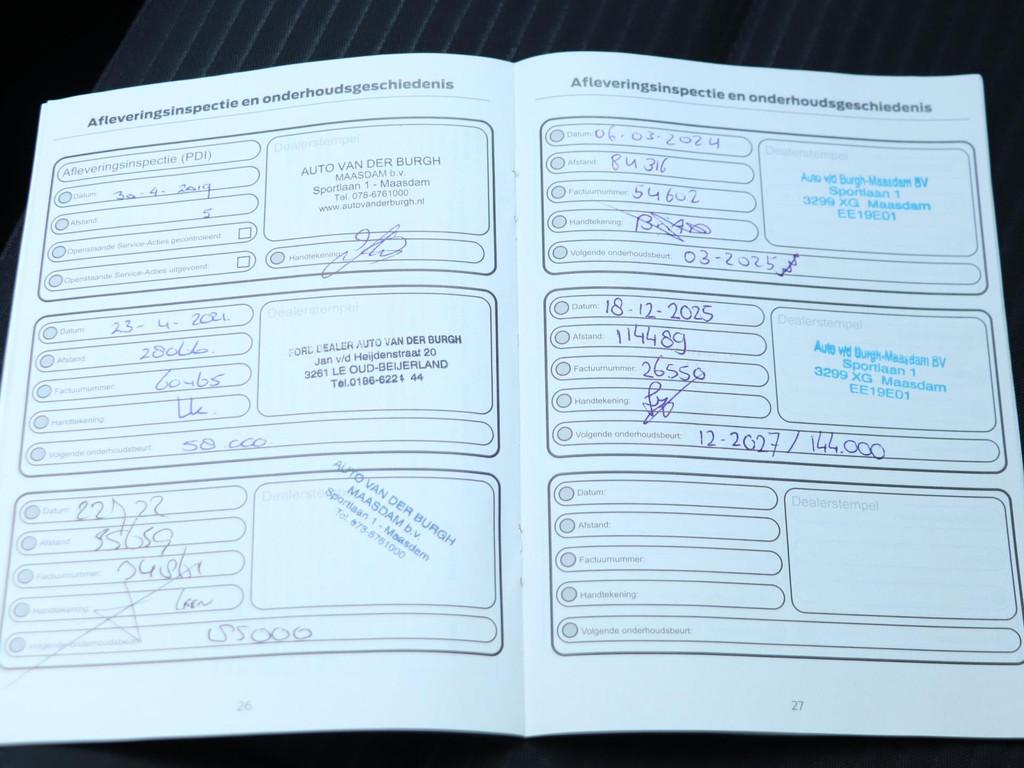 Afleveringsinspectie en onderhoudsgeschiedenis
Afleveringsinspectie (PDI)
Datum: 30-4-2019
Afstand: 5
Openstaande Service-Acties gecontroleerd:
Openstaande Service-Acties uitgevoerd:
Dealerstempel
AUTO VAN DER BURGH
MAASDAM b.v.
Sportlaan 1 - Maasdam
Tel. 078-6761000
www.autovanderburgh.nl
Handtekening:
Datum: 23-4-2021.
Afstand:
Factuurnummer: 60465
Handtekening:
Volgende onderhoudsbeurt: 58.000.
Dealerstempel
FORD DEALER AUTO VAN DER BURGH
Jan v/d Heijdenstraat 20
3261 LE OUD-BEIJERLAND
Tel.0186-6221 44
Datum:
Afstand: 55659
Factuurnummer:
Handtekening:
Volgende onderhoudsbeurt:
Dealerstempel
AUTO VAN DER BURGH
MAASDAM b.v.
Sportlaan 1 - Maasdam
Tel. 078-6761000
26
Afleveringsinspectie en onderhoudsgeschiedenis
Datum: 06-03-2024
Afstand: 84316
Factuurnummer: 54602
Handtekening:
Volgende onderhoudsbeurt: 03-2025
Dealerstempel
Auto v/d Burgh-Maasdam BV
Sportlaan 1
3299 XG Maasdam
EE19E01
Datum: 18-12-2025
Afstand: 114489
Factuurnummer: 26550
Handtekening:
Volgende onderhoudsbeurt: 12-2027 / 144.000
Dealerstempel
Auto v/d Burgh-Maasdam BV
Sportlaan 1
3299 XG Maasdam
EE19E01
Datum:
Afstand:
Factuurnummer:
Handtekening:
Volgende onderhoudsbeurt:
Dealerstempel
27